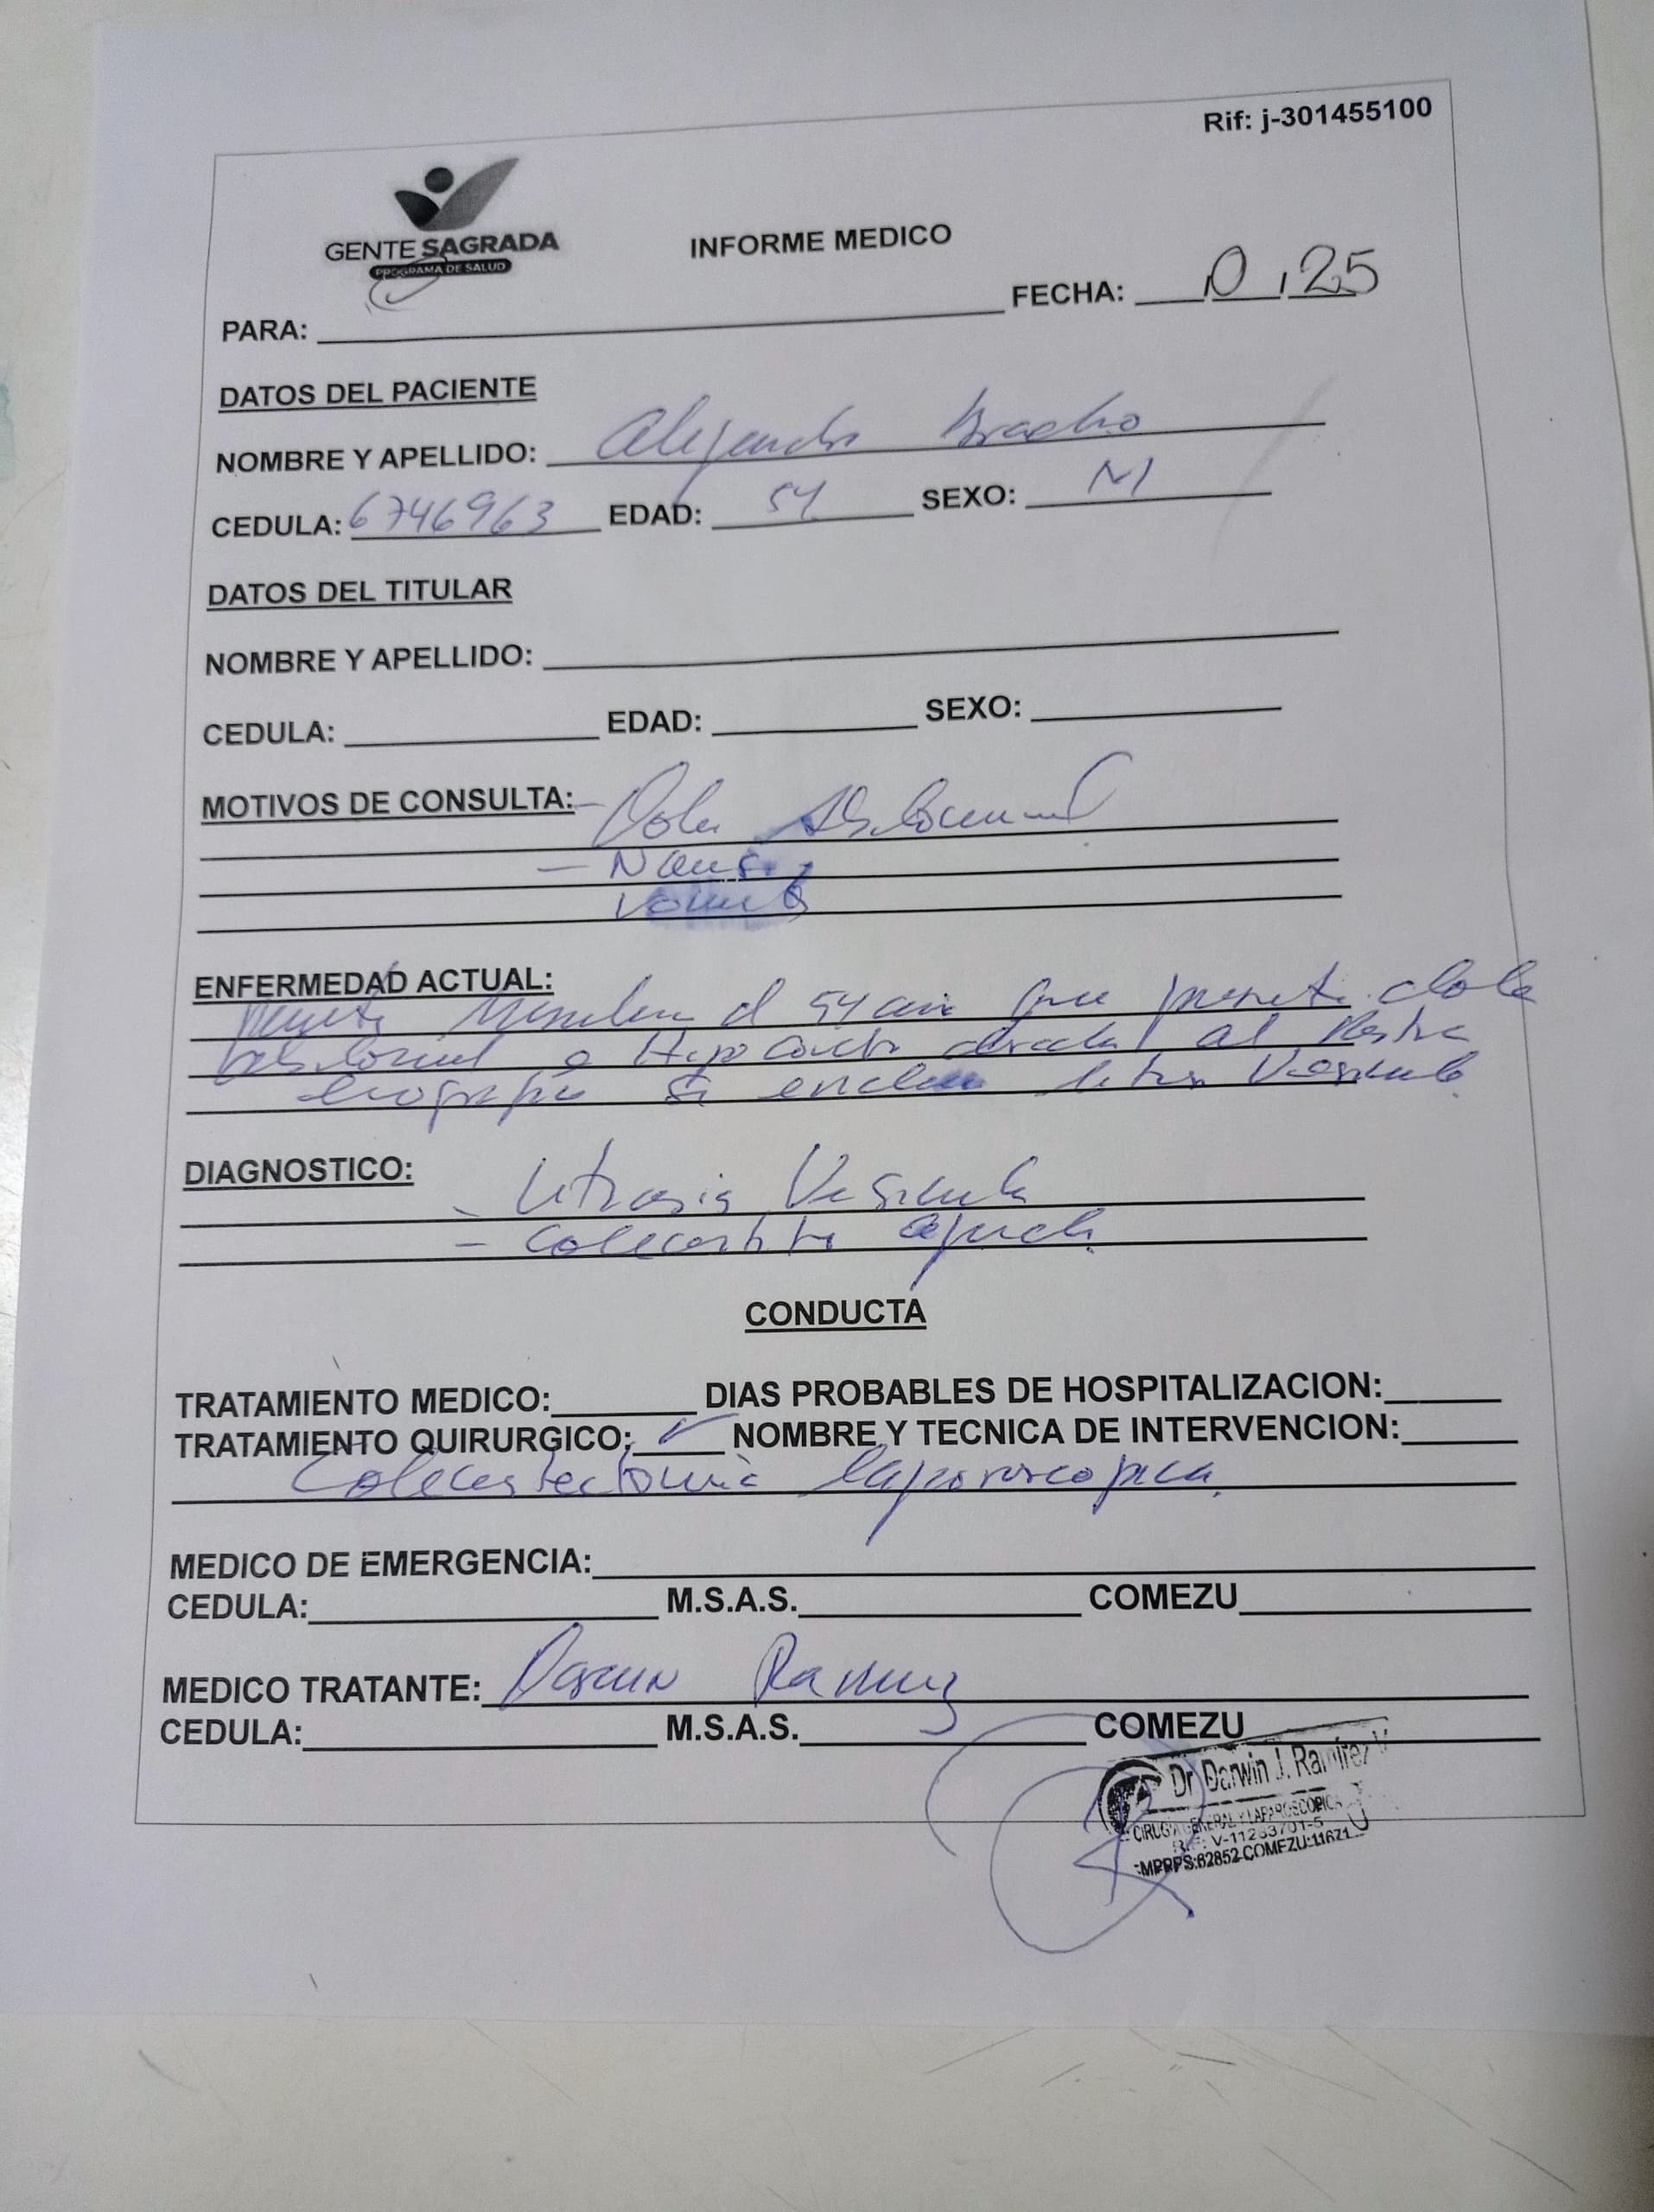 Rif: j-301455100
GENTE SAGRADA
PROGRAMA DE SALUD
INFORME MEDICO
FECHA: 0 , 25
PARA:
DATOS DEL PACIENTE
NOMBRE Y APELLIDO: Alejandro Bracho
CEDULA: 6746963 EDAD: 54 SEXO: M
DATOS DEL TITULAR
NOMBRE Y APELLIDO:
CEDULA: EDAD: SEXO:
MOTIVOS DE CONSULTA: - Dolor Abdominal
- Naus
Vomito
ENFERMEDAD ACTUAL:
54 que dolor
a al
ecografia se Vesicula
DIAGNOSTICO:
- Litiasis Vesicula
- Colecistitis aguda
CONDUCTA
TRATAMIENTO MEDICO: DIAS PROBABLES DE HOSPITALIZACION:
TRATAMIENTO QUIRURGICO: ✓ NOMBRE Y TECNICA DE INTERVENCION:
Colecistectomia laparoscopica
MEDICO DE EMERGENCIA:
CEDULA: M.S.A.S. COMEZU
MEDICO TRATANTE: Darwin Ramirez
CEDULA: M.S.A.S. COMEZU
Dr. Darwin J. Ramírez V
CIRUGIA GENERAL Y LAPAROSCOPICA
RIF: V-11283701-5
MPPPS:62852 COMEZU:11671